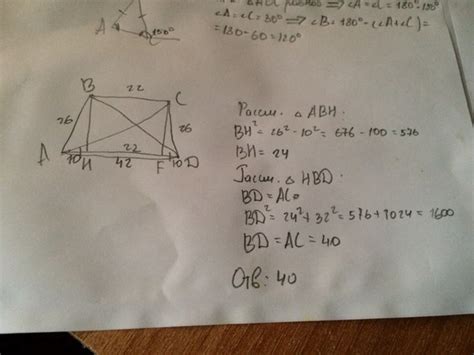 ∠A=∠C=180°-150°
A
150°
∠A=∠C=30° ⟹ ∠B=180°-(∠A+∠C)=
=180-60=120°
B
22
C
26
26
A
10
H
22
F
10
D
42
Рассм. △ ABH.
BH²=26²-10²=676-100=576
BH=24
Рассм. △ HBD.
BD=AC
BD²=24²+32²=576+1024=1600
BD=AC=40
Отв: 40